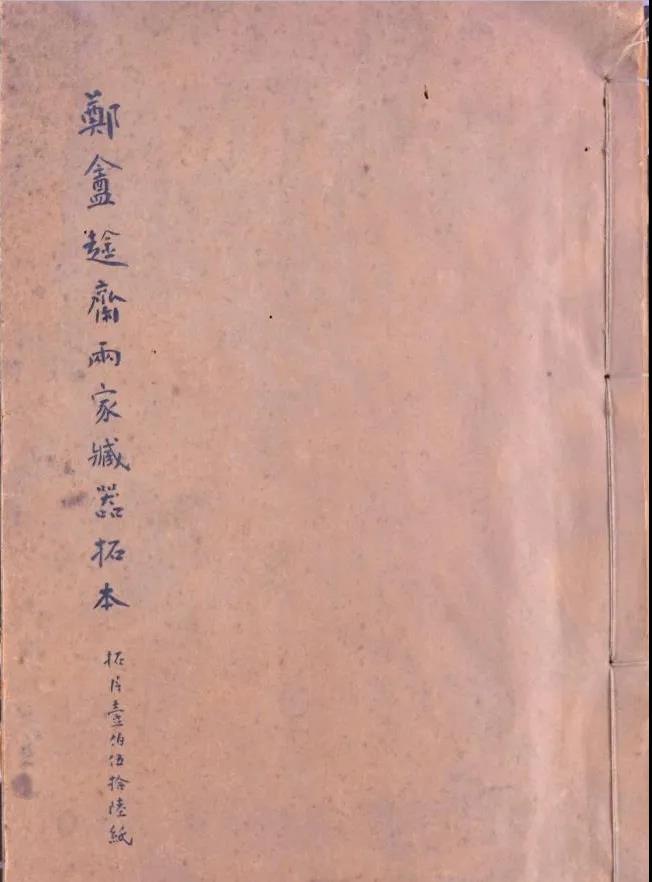 鄭盦愙齋兩家臧器拓本
拓片壹伯伍拾陸紙